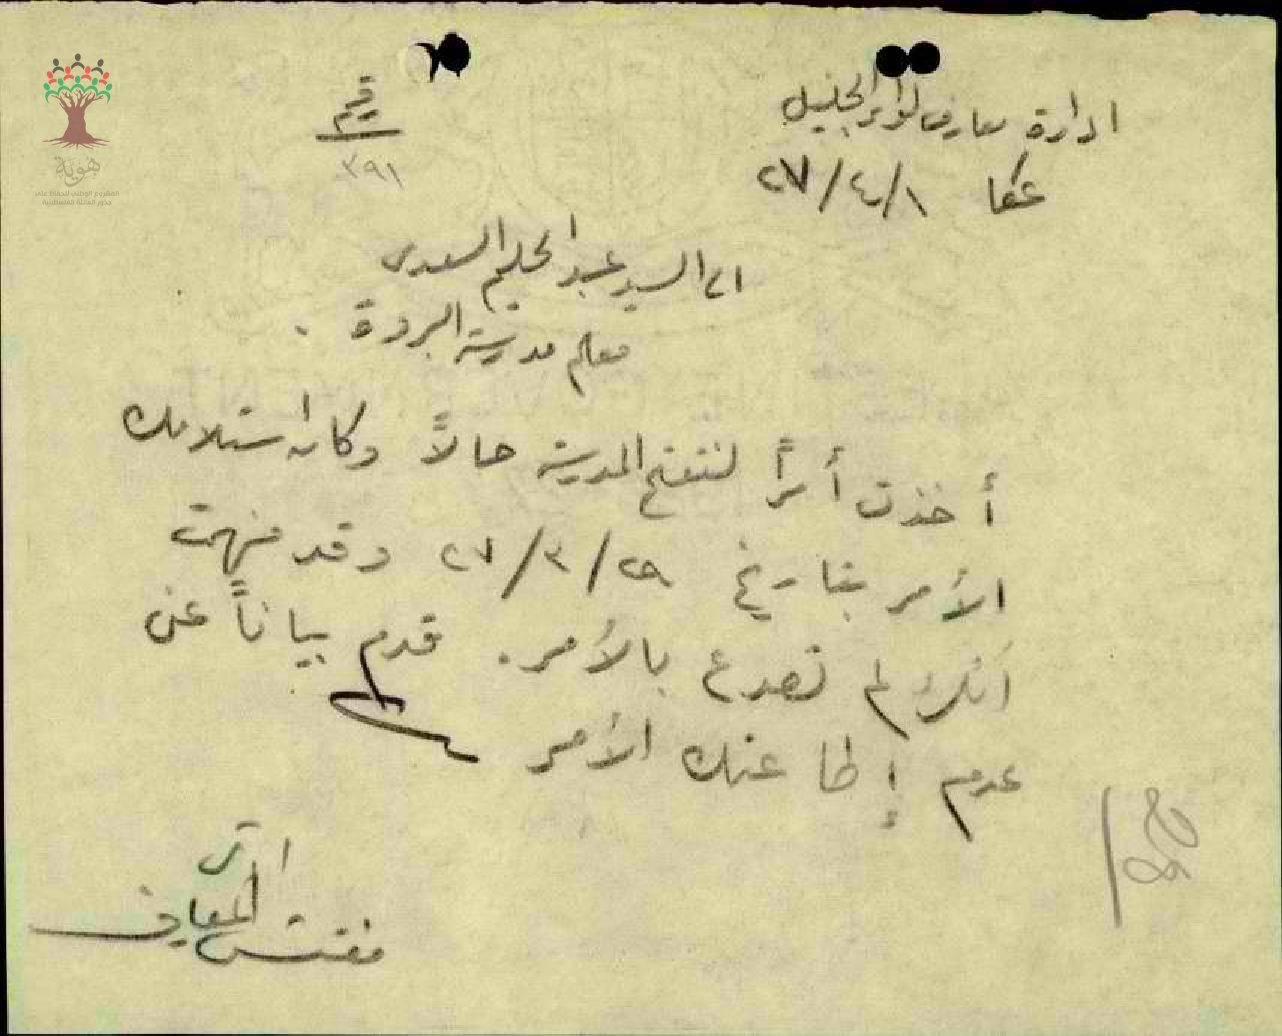 ادارة معارف لواء الجليل
رقم
٣٩١
عكا ٢٧/٤/١
الى السيد عبد الحليم السعدى
معلم مدرسة البروة .
أخذت أمراً لتفتح المدرسة حالاً وكان استلامك
الأمر بتاريخ ٢٧/٣/٢٩ وقد فهمت
انك لم تصدع بالأمر. قدم بياناً عن
عدم إطاعتك الأمر
مفتش المعارف
هوية
المشروع الوطني للحفاظ على
جذور العائلة الفلسطينية